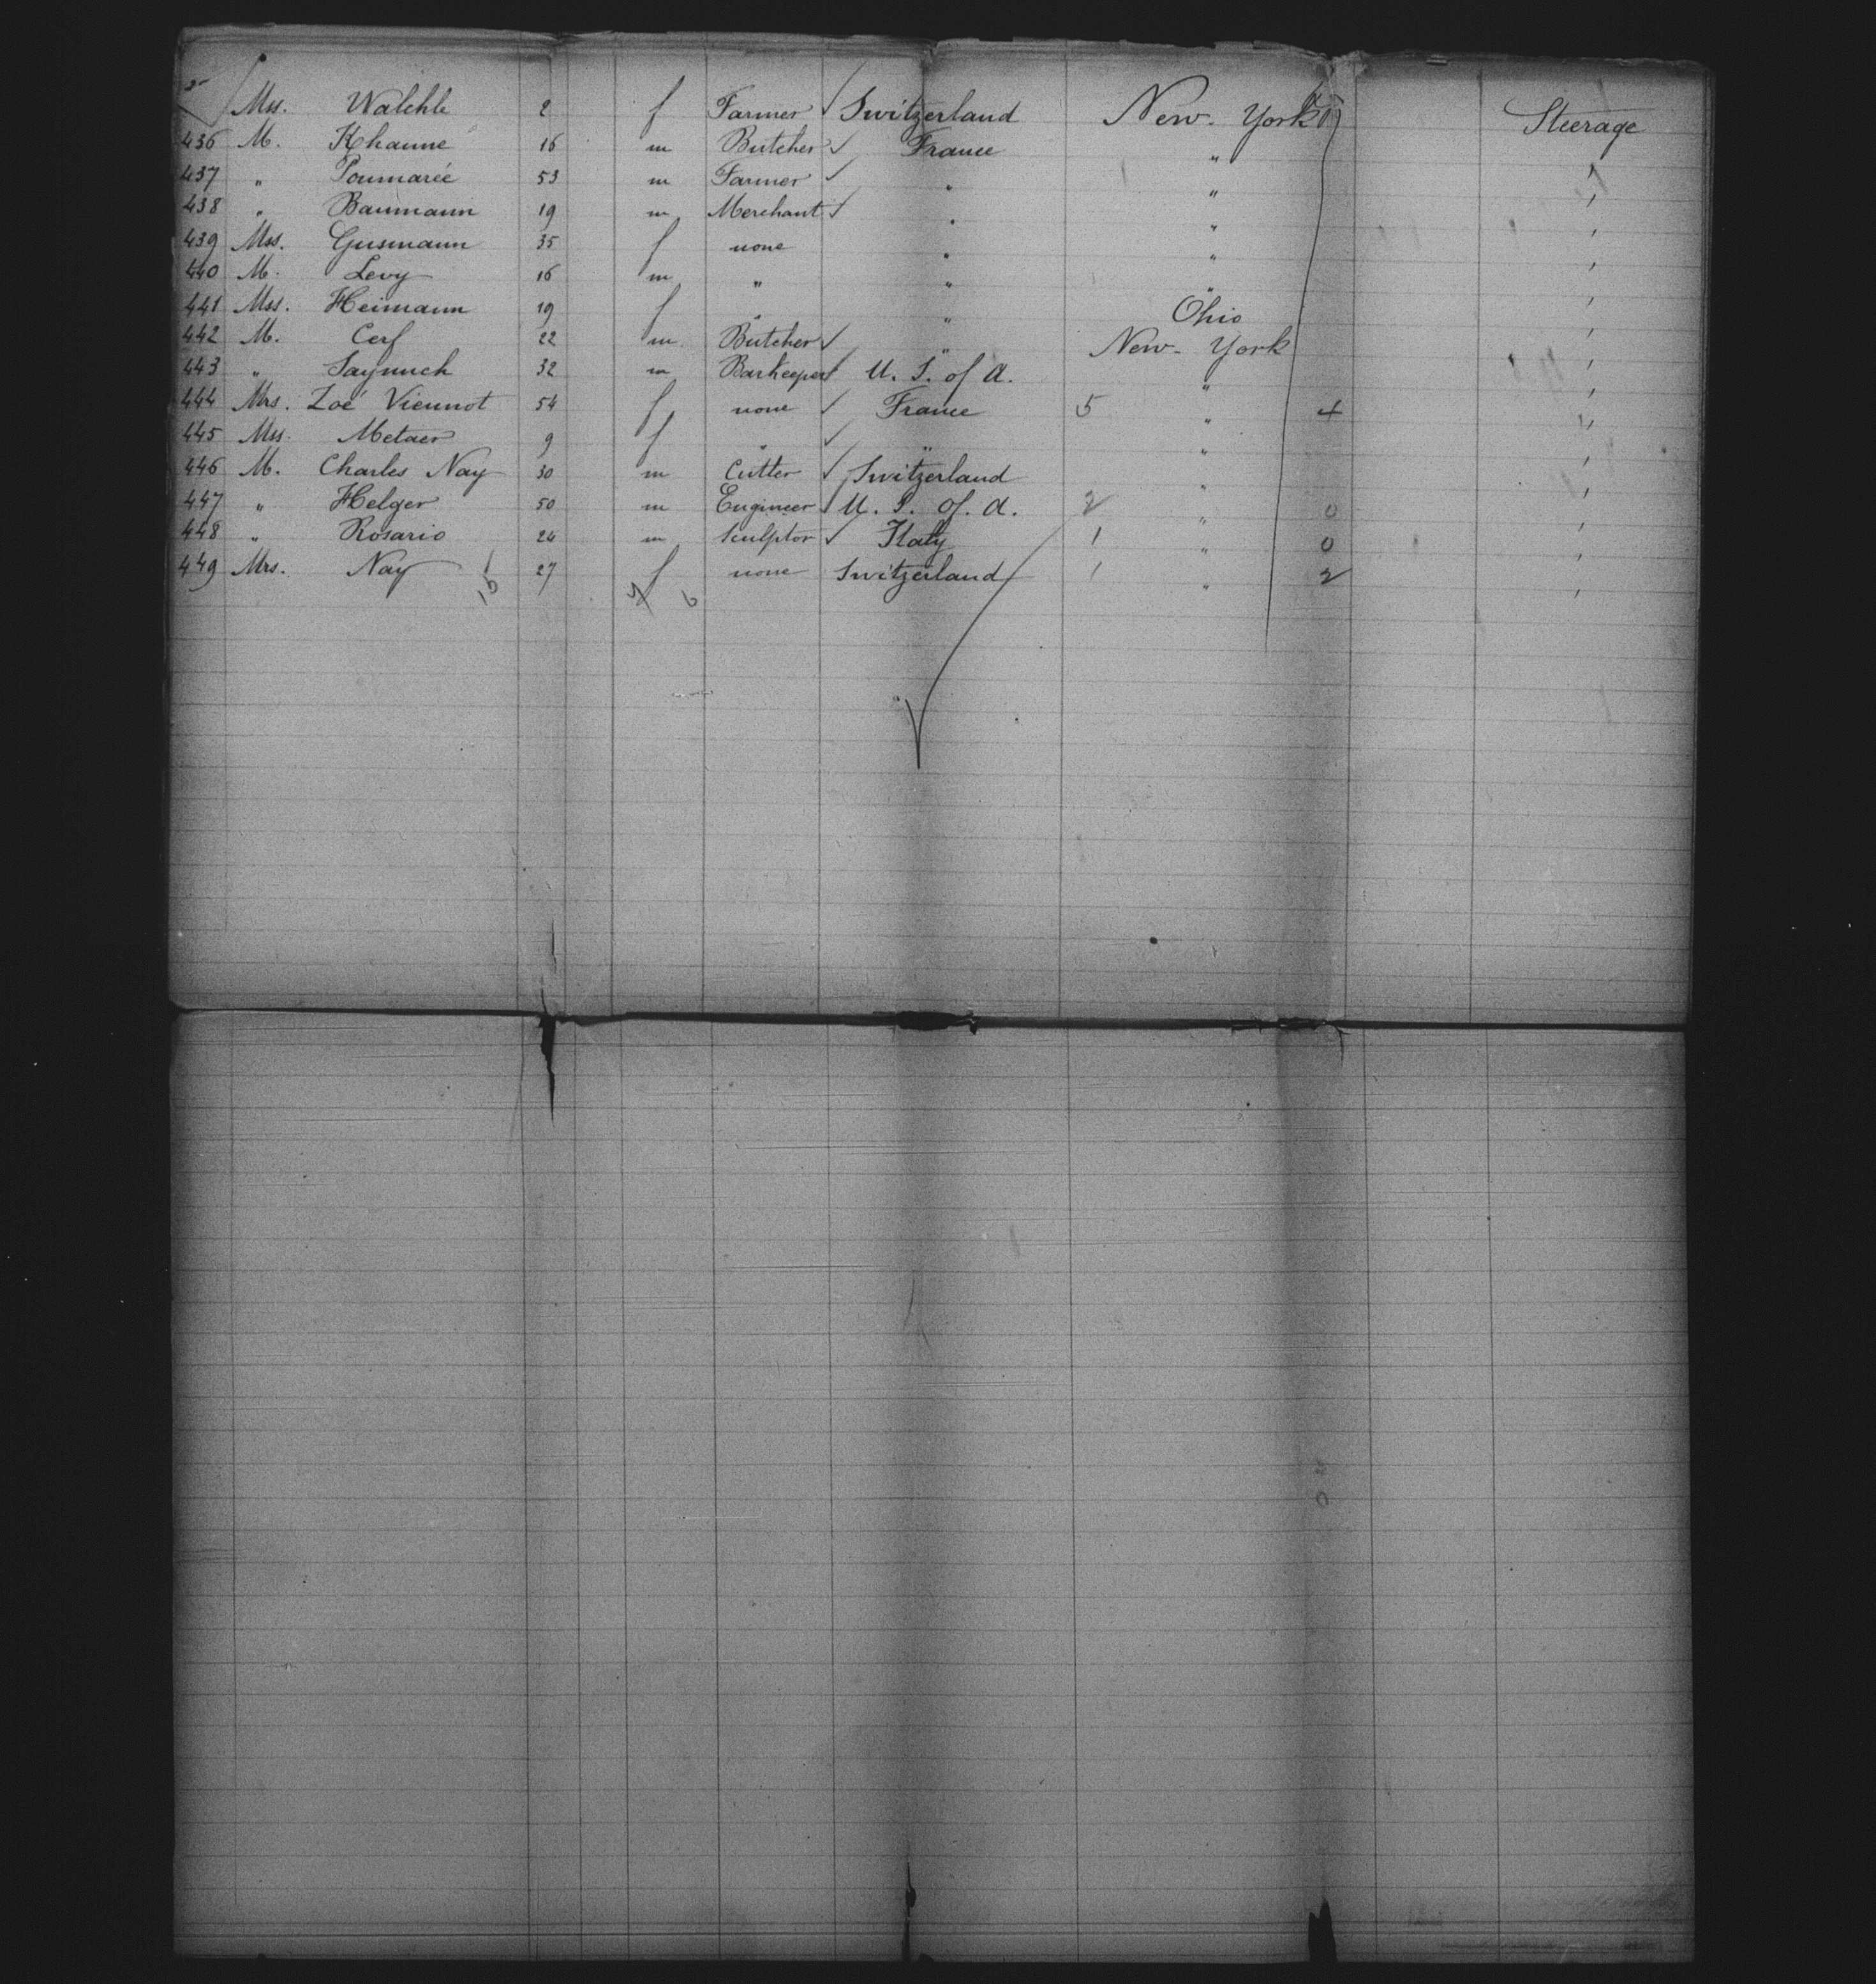 Mss. Walchli 2 f Farmer Switzerland New-York Steerage
436 M. Khanne 16 m Butcher France " "
437 " Poumarée 53 m Farmer " " "
438 " Baumann 19 m Merchant " " "
439 Mss. Gusmann 35 f none " " "
440 M. Levy 16 m " " " "
441 Mss. Heimann 19 f " " Ohio "
442 M. Cerf 22 m Butcher " New-York "
443 " 32 m Barkeeper U. S. of A. " "
444 Mrs. Zoé Viennot 54 f none France 5 " 4 "
445 Mss. Metaer 9 f " " " "
446 M. Charles Nay 30 m Cutter Switzerland " "
447 " Helger 50 m Engineer U. S. of. A. 2 " 0 "
448 " Rosario 24 m Sculptor Italy 1 " 0 "
449 Mrs. Nay 27 f none Switzerland 1 " 2 "
15 6